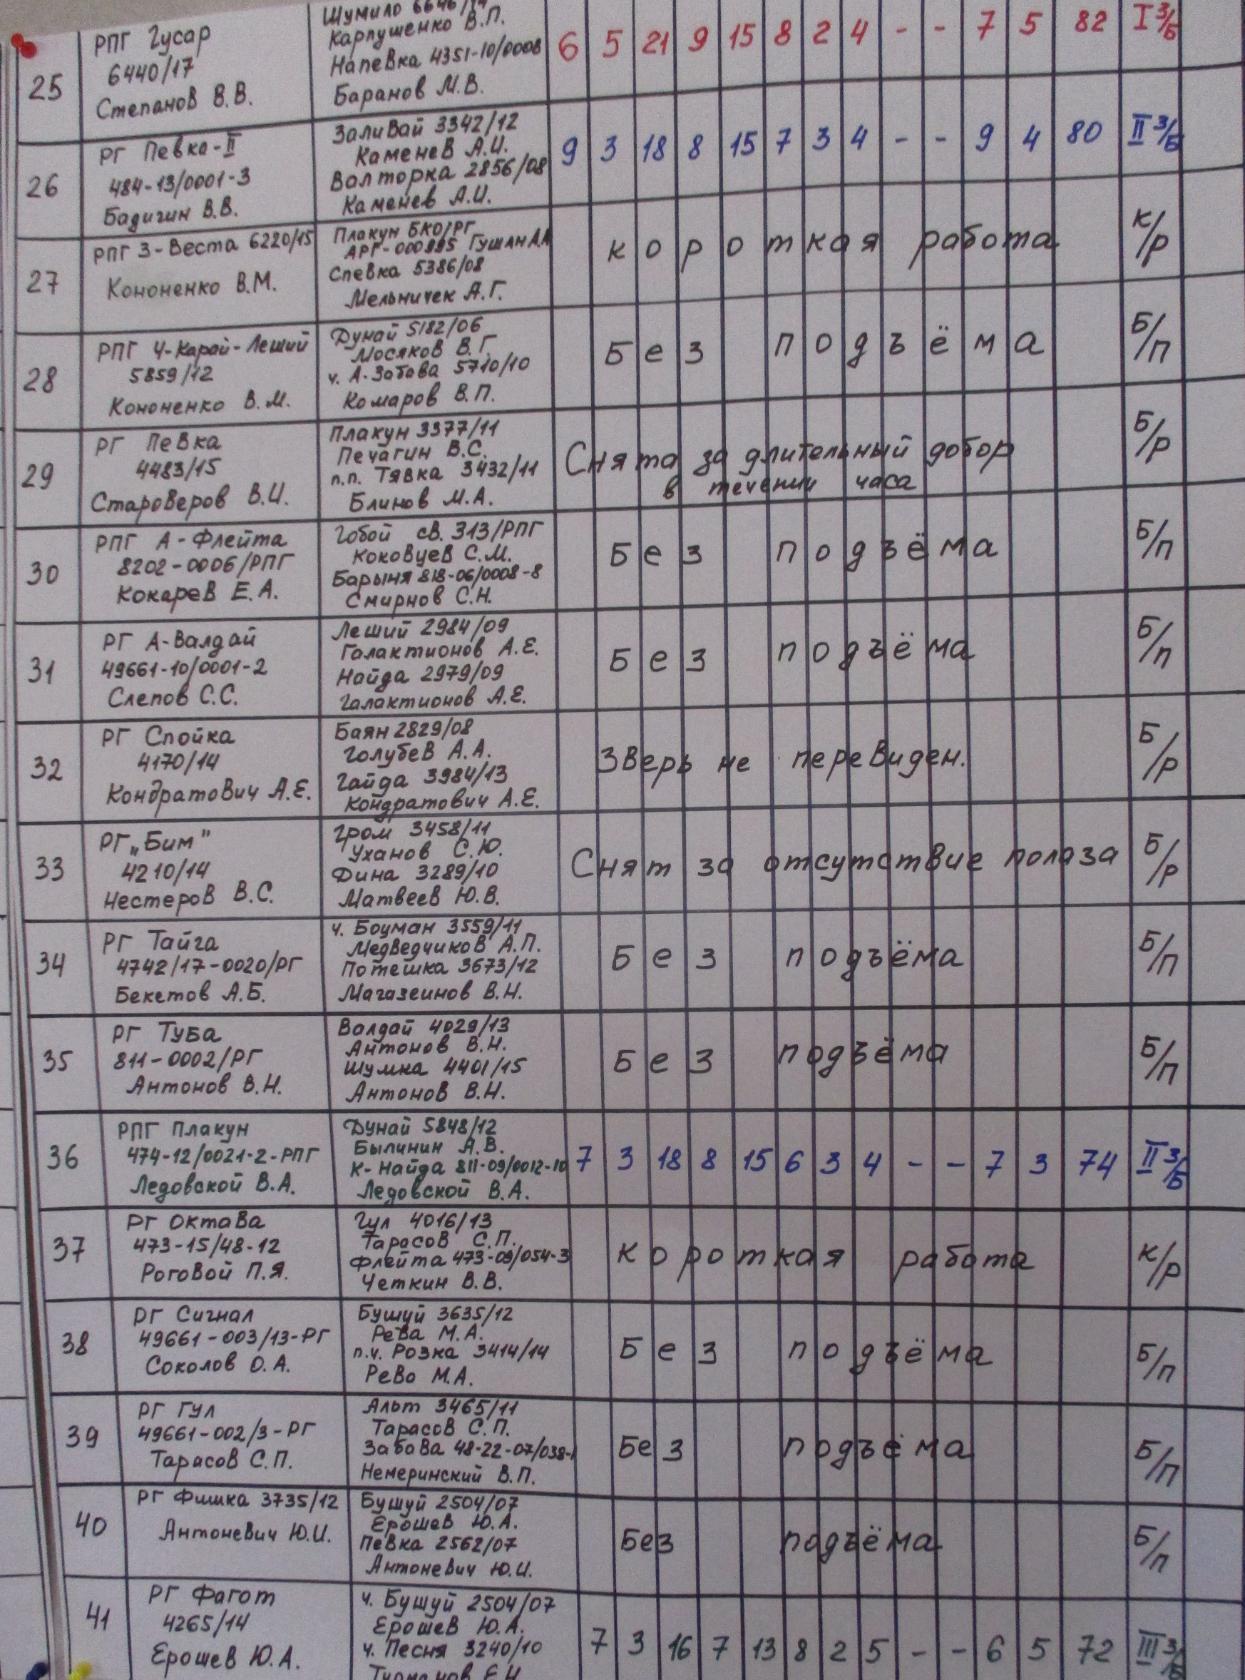 25
РПГ Гусар
6440/17
Степанов В.В.
Шумило 6646/14
Карпушенко В.П.
Напевка 4351-10/0008
Баранов М.В.
6 5 21 9 15 8 2 4 - - 7 5 82 I З/Б
26
РГ Певка-II
484-13/0001-3
Бадигин В.В.
Заливай 3342/12
Каменев А.И.
Волторка 2856/08
Каменев А.И.
9 3 18 8 15 7 3 4 - - 9 4 80 II З/Б
27
РПГ З-Веста 6220/15
Кононенко В.М.
Плакун БКО/РГ
АРГ-000895 Гушан А.А
Спевка 5386/08
Мельничек А.Г.
короткая работа К/Р
28
РПГ Ч-Карай-Леший
5859/12
Кононенко В.М.
Дунай 5182/06
Мосяков В.Г.
ч. А-Зотова 5710/10
Комаров В.П.
Без подъёма Б/П
29
РГ Певка
4483/15
Староверов В.И.
Плакун 3377/11
Печагин В.С.
п.п. Тявка 3432/11
Блинов М.А.
Снята за длительный добор
в течении часа
Б/Р
30
РПГ А-Флейта
8202-0006/РПГ
Кокарев Е.А.
Гобой св. 313/РПГ
Коковцев С.М.
Барыня 818-06/0008-8
Смирнов С.Н.
Без подъёма Б/П
31
РГ А-Валдай
49661-10/0001-2
Слепов С.С.
Леший 2984/09
Галактионов А.Е.
Найда 2979/09
Галактионов А.Е.
Без подъёма Б/П
32
РГ Спойка
4170/14
Кондратович А.Е.
Баян 2829/08
Голубев А.А.
Гайда 3984/13
Кондратович А.Е.
Зверь не перевиден. Б/Р
33
РГ „Бим"
4210/14
Нестеров В.С.
Гром 3458/11
Уханов С.Ю.
Дина 3289/10
Матвеев Ю.В.
Снят за отсутствие полаза Б/Р
34
РГ Тайга
4742/17-0020/РГ
Бекетов А.Б.
ч. Боцман 3559/11
Медведчиков А.П.
Потешка 3673/12
Магазеинов В.Н.
Без подъёма Б/П
35
РГ Туба
811-0002/РГ
Антонов В.Н.
Волдай 4029/13
Антонов В.Н.
Шумка 4401/15
Антонов В.Н.
Без подъёма Б/П
36
РПГ Плакун
474-12/0021-2-РПГ
Ледовской В.А.
Дунай 5848/12
Былинин А.В.
К-Найда 811-09/0012-10
Ледовской В.А.
7 3 18 8 15 6 3 4 - - 7 3 74 II З/Б
37
РГ Октава
473-15/48-12
Роговой П.Я.
Гул 4016/13
Тарасов С.П.
Флейта 473-09/054-3
Четкин В.В.
Короткая работа К/Р
38
РГ Сигнал
49661-003/13-РГ
Соколов О.А.
Бушуй 3635/12
Рева М.А.
п.ч. Розка 3414/14
Рево М.А.
Без подъёма Б/П
39
РГ Гул
49661-002/3-РГ
Тарасов С.П.
Альт 3465/11
Тарасов С.П.
Забава 48-22-07/038-1
Немеринский В.П.
Без подъёма Б/П
40
РГ Фишка 3735/12
Антоневич Ю.И.
Бушуй 2504/07
Ерошев Ю.А.
Певка 2562/07
Антоневич Ю.И.
Без подъёма Б/П
41
РГ Фагот
4265/14
Ерошев Ю.А.
ч. Бушуй 2504/07
Ерошев Ю.А.
ч. Песня 3240/10
7 3 16 7 13 8 2 5 - - 6 5 72 III З/Б